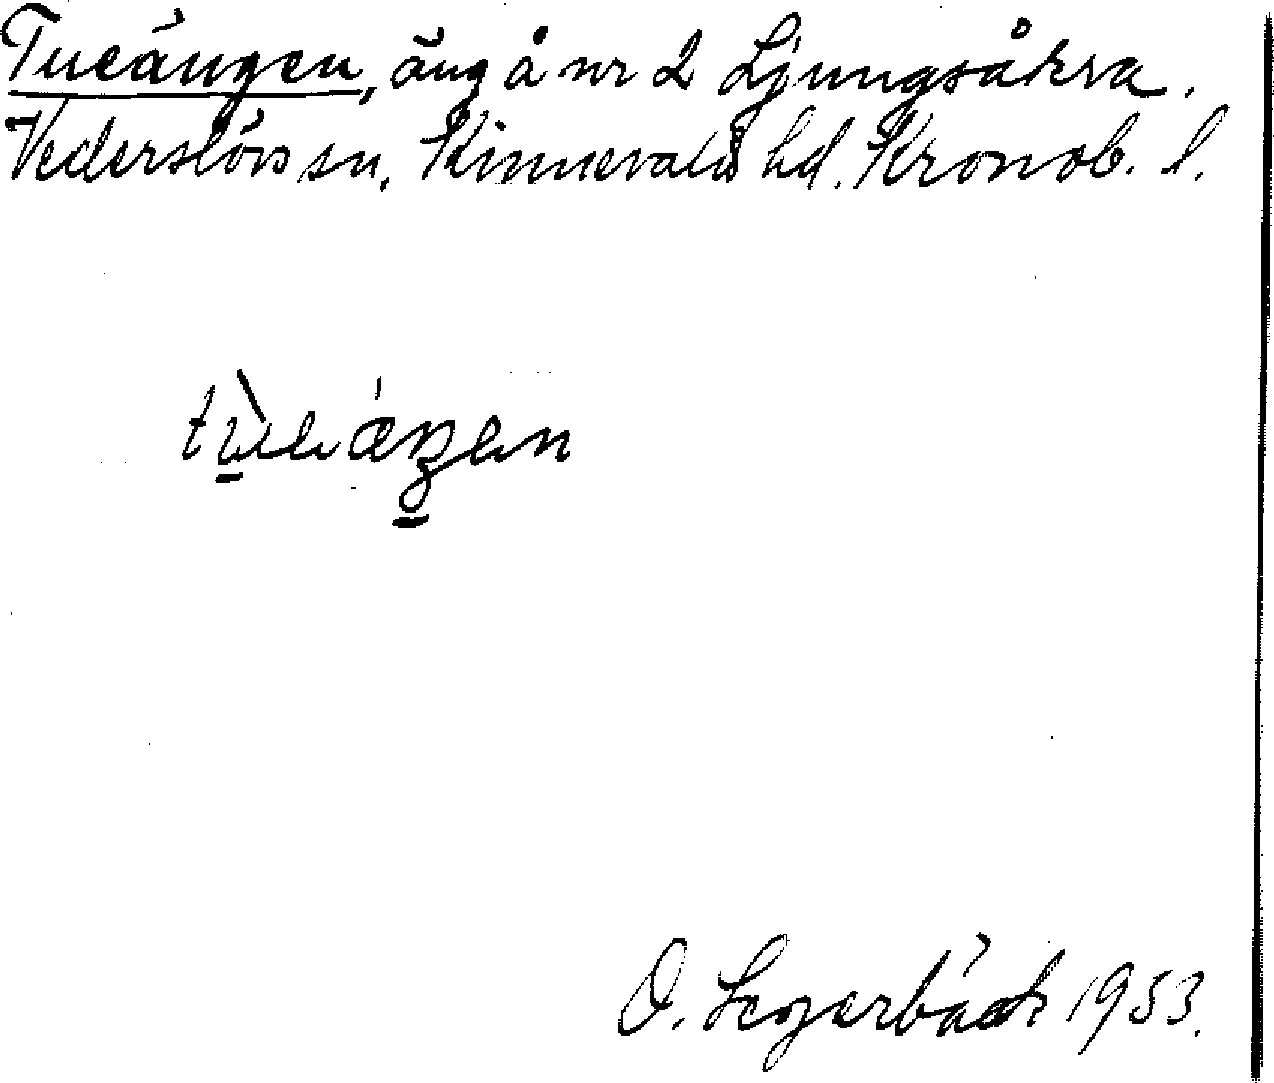 Tueängen, äng å nr 2 Ljungsåkra.
Vederslövs sn, Kinnevalds hd. Kronob. l.
O. Segerbäck 1953.